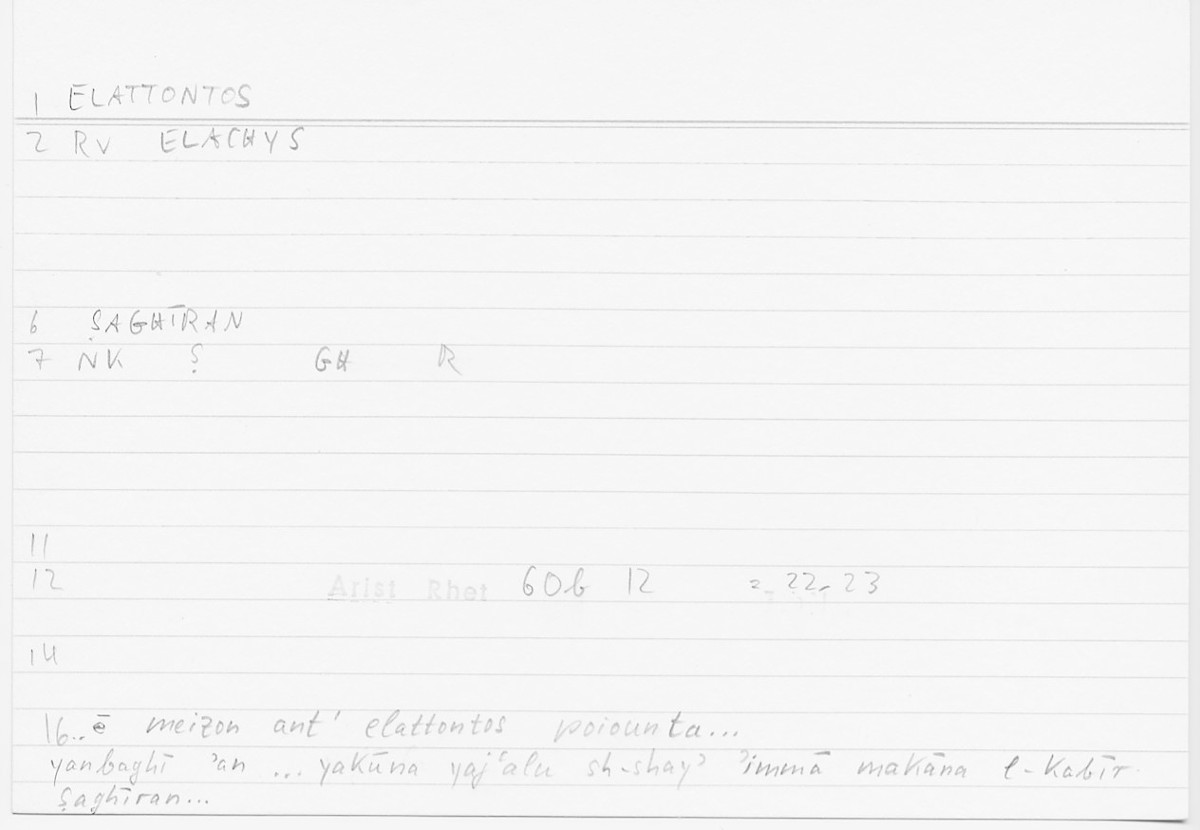 1 ELATTONTOS
2 RV ELACHYS
6 ṢAGHĪRAN
7 NK Ṣ GH R
11
12 Arist Rhet 60b 12 = 22, 23
14
16..ē meizon ant' elattontos poiounta...
yanbaghī ʾan ... yakūna yajʿalu sh-shayʾ ʾimmā makāna l-kabīr
ṣaghīran...